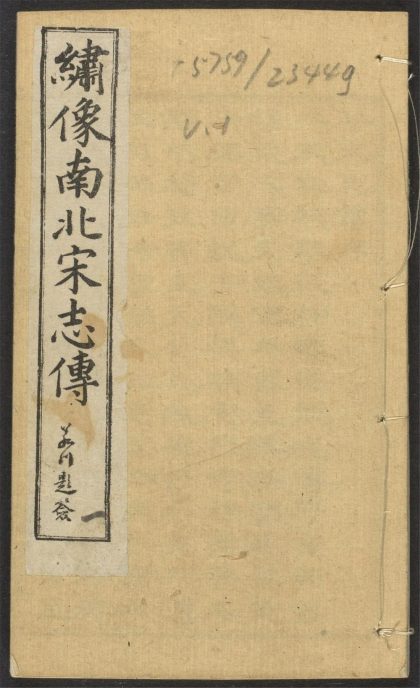 繡像南北宋志傳
題簽
一
5759/23449
V.1